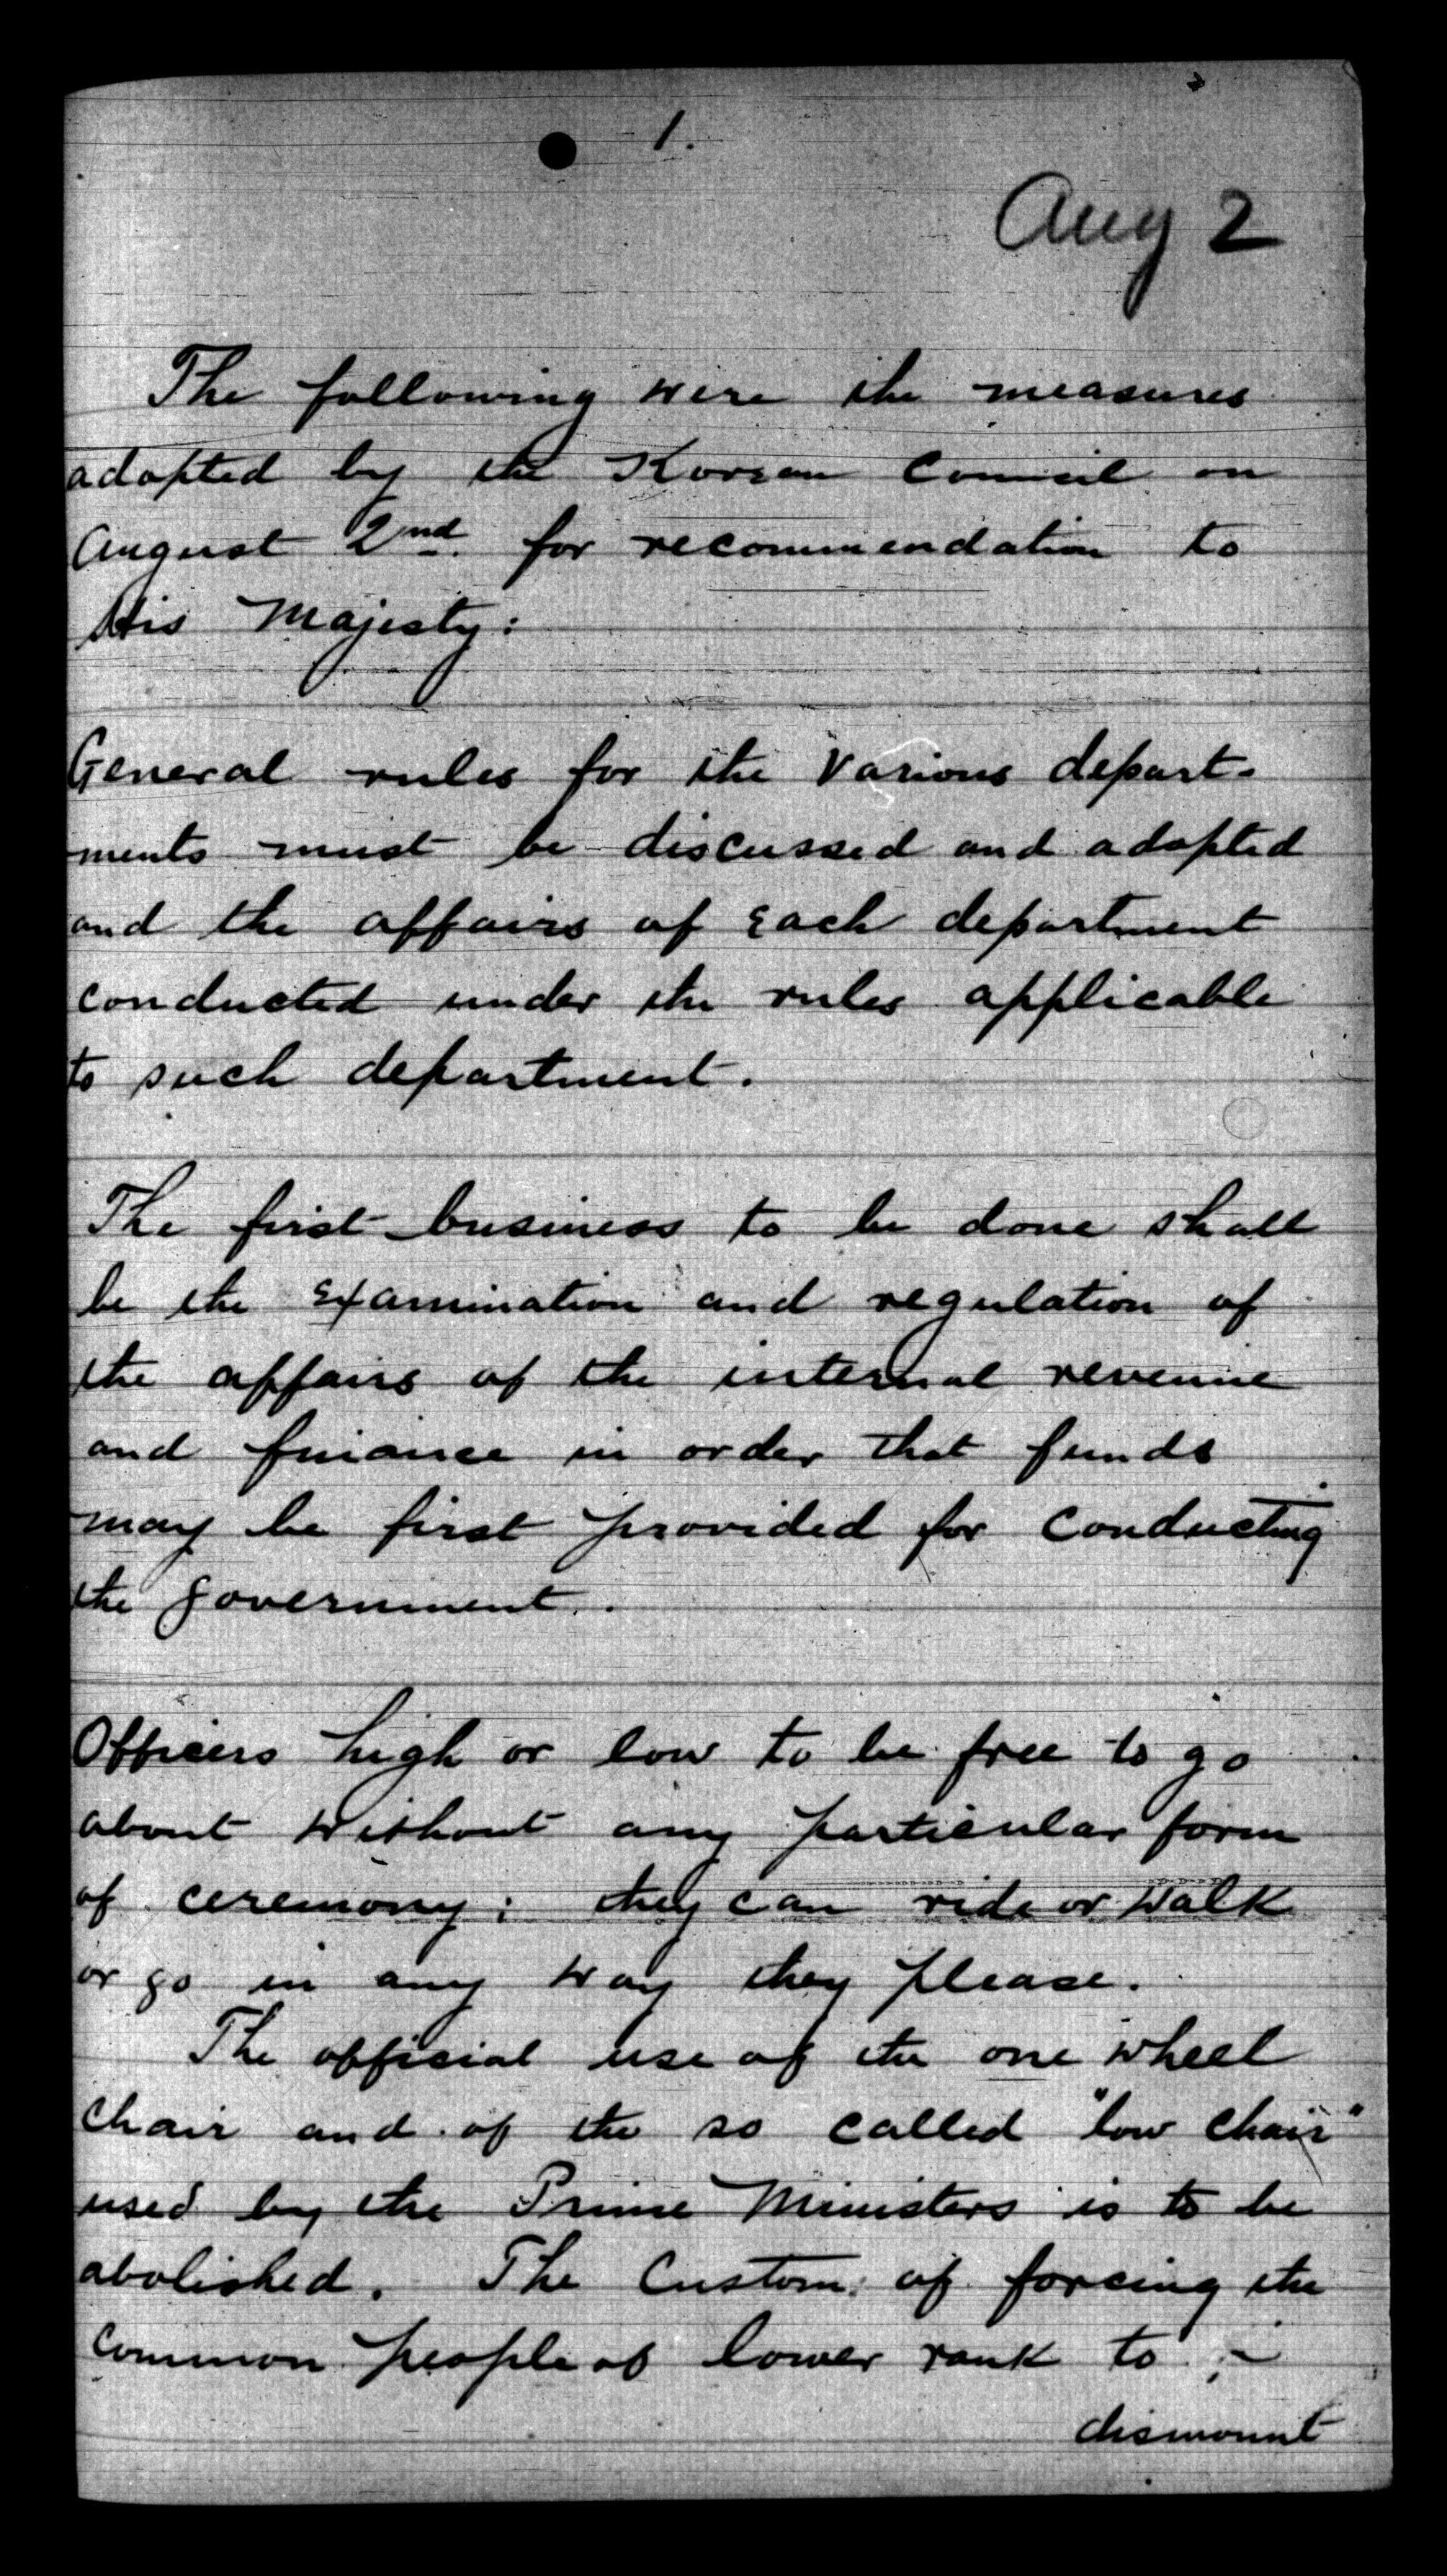 1.
Aug 2
The following were the measures
adopted by the Korean Council on
August 2nd. for recommendation to
His Majesty:
General rules for the Various depart-
ments must be discussed and adopted
and the affairs of Each department
conducted under the rules applicable
to such department.
The first business to be done shall
be the Examination and regulation of
the affairs of the internal revenue
and finance in order that funds
may be first provided for Conducting
the government.
Officers high or low to be free to go
about without any particular form
of ceremony; they can ride or walk
or go in any way they please.
The official use of the one wheel
Chair and of the so called "low Chair"
used by the Prime Ministers is to be
abolished. The Custom of forcing the
common people of lower rank to -
dismount